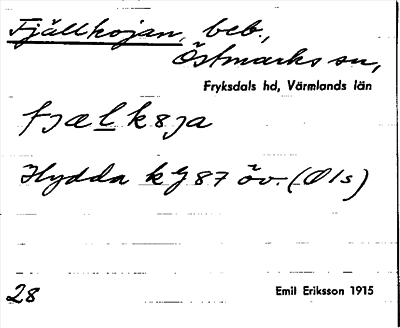 Fjällkojan, beb.,
Östmarks sn,
Fryksdals hd, Värmlands län
fjælk8ja
Hydda kG87 öv. (Øls)
28
Emil Eriksson 1915